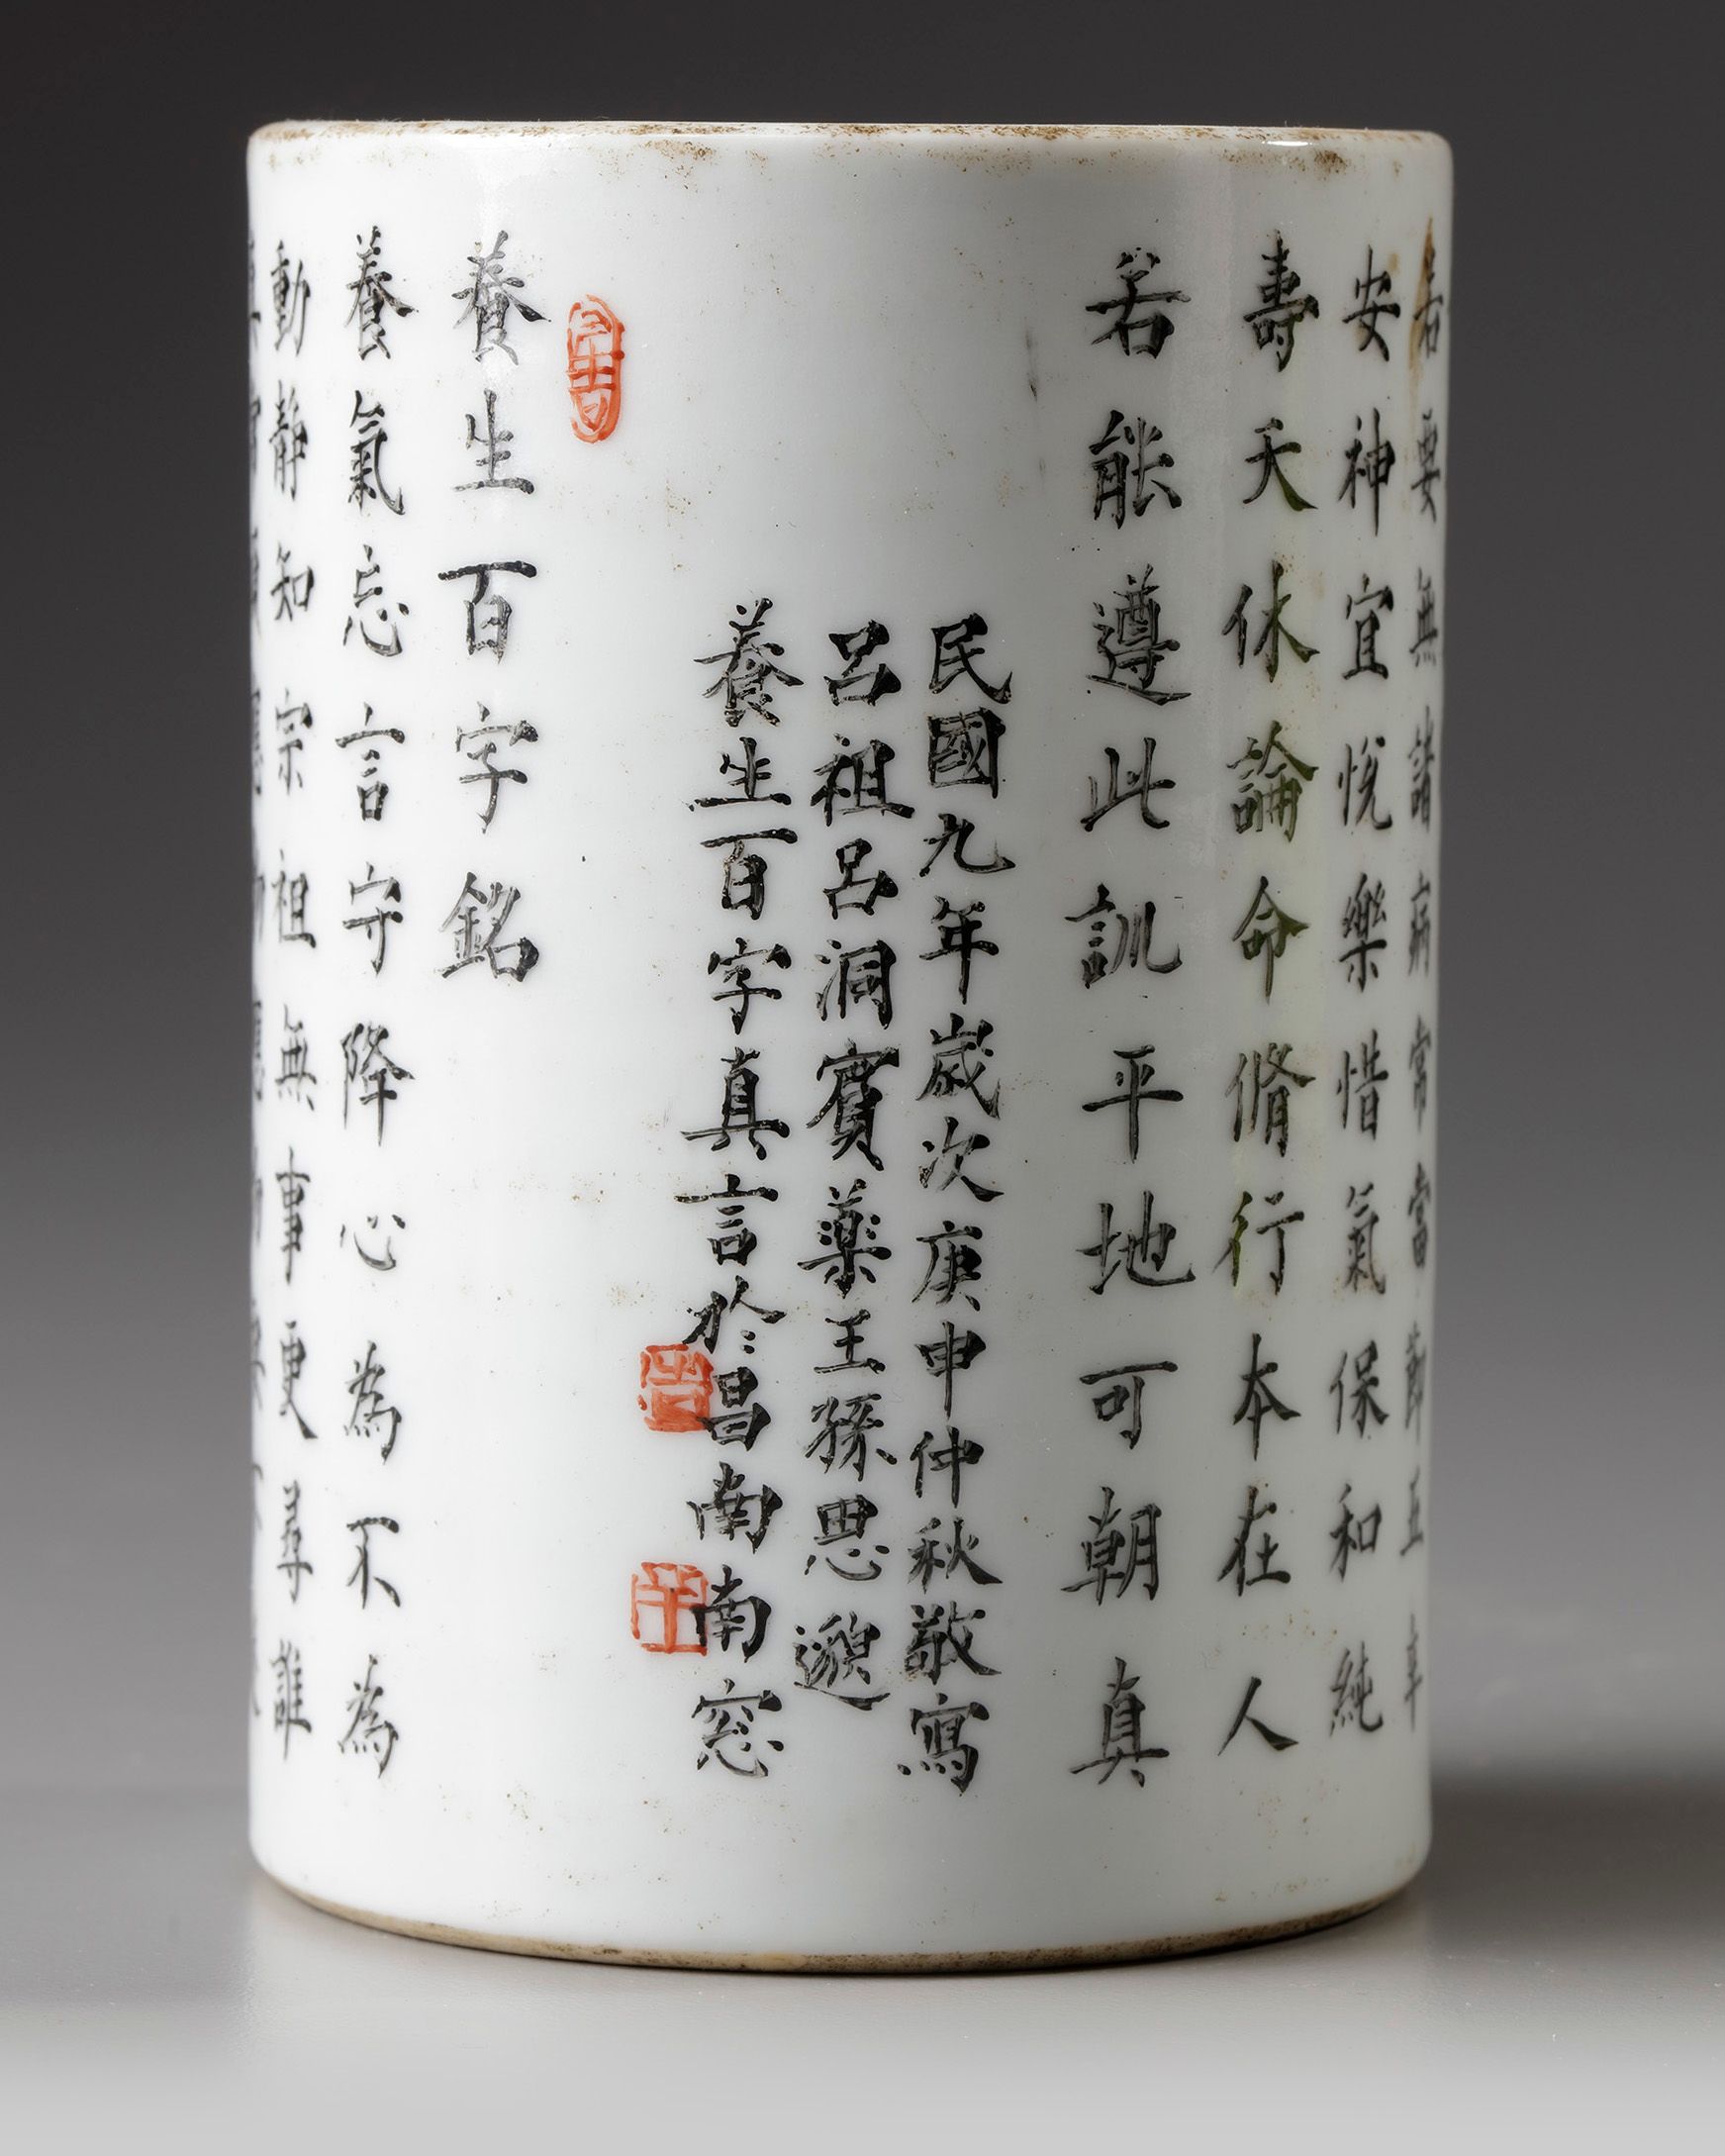 若要無諸病常當節五辛
安神宜悅樂惜氣保和純
壽夭休論命脩行本在人
若能遵此訓平地可朝真
民國九年歲次庚申仲秋敬寫
呂祖呂洞賓藥王孫思邈
養生百字真言於昌南南窓
養生百字銘
養氣忘言守降心為不為
動靜知宗祖無事更尋誰